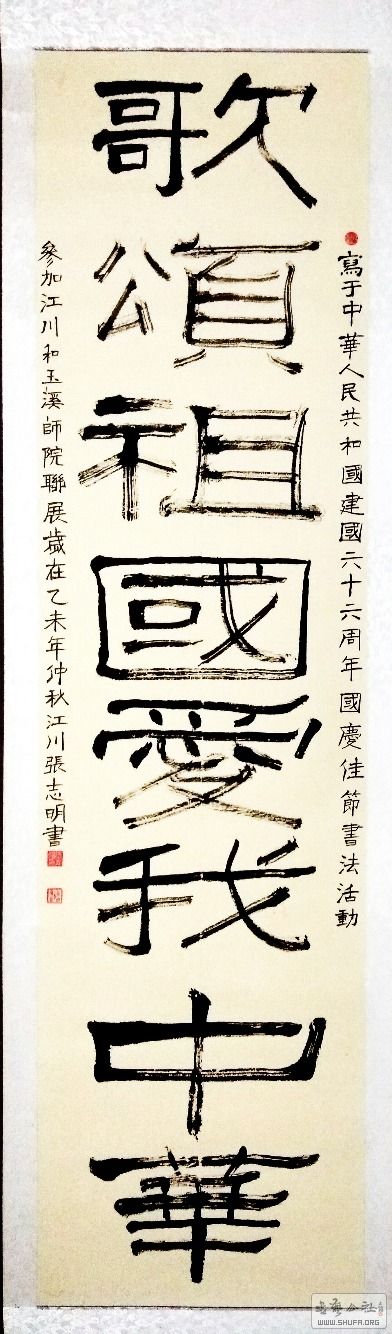 歌頌祖國愛我中華
寫于中華人民共和國建國六十六周年國慶佳節書法活動
參加江川和玉溪師院聯展歲在乙未年仲秋江川張志明書
WWW.SHUFA.ORG